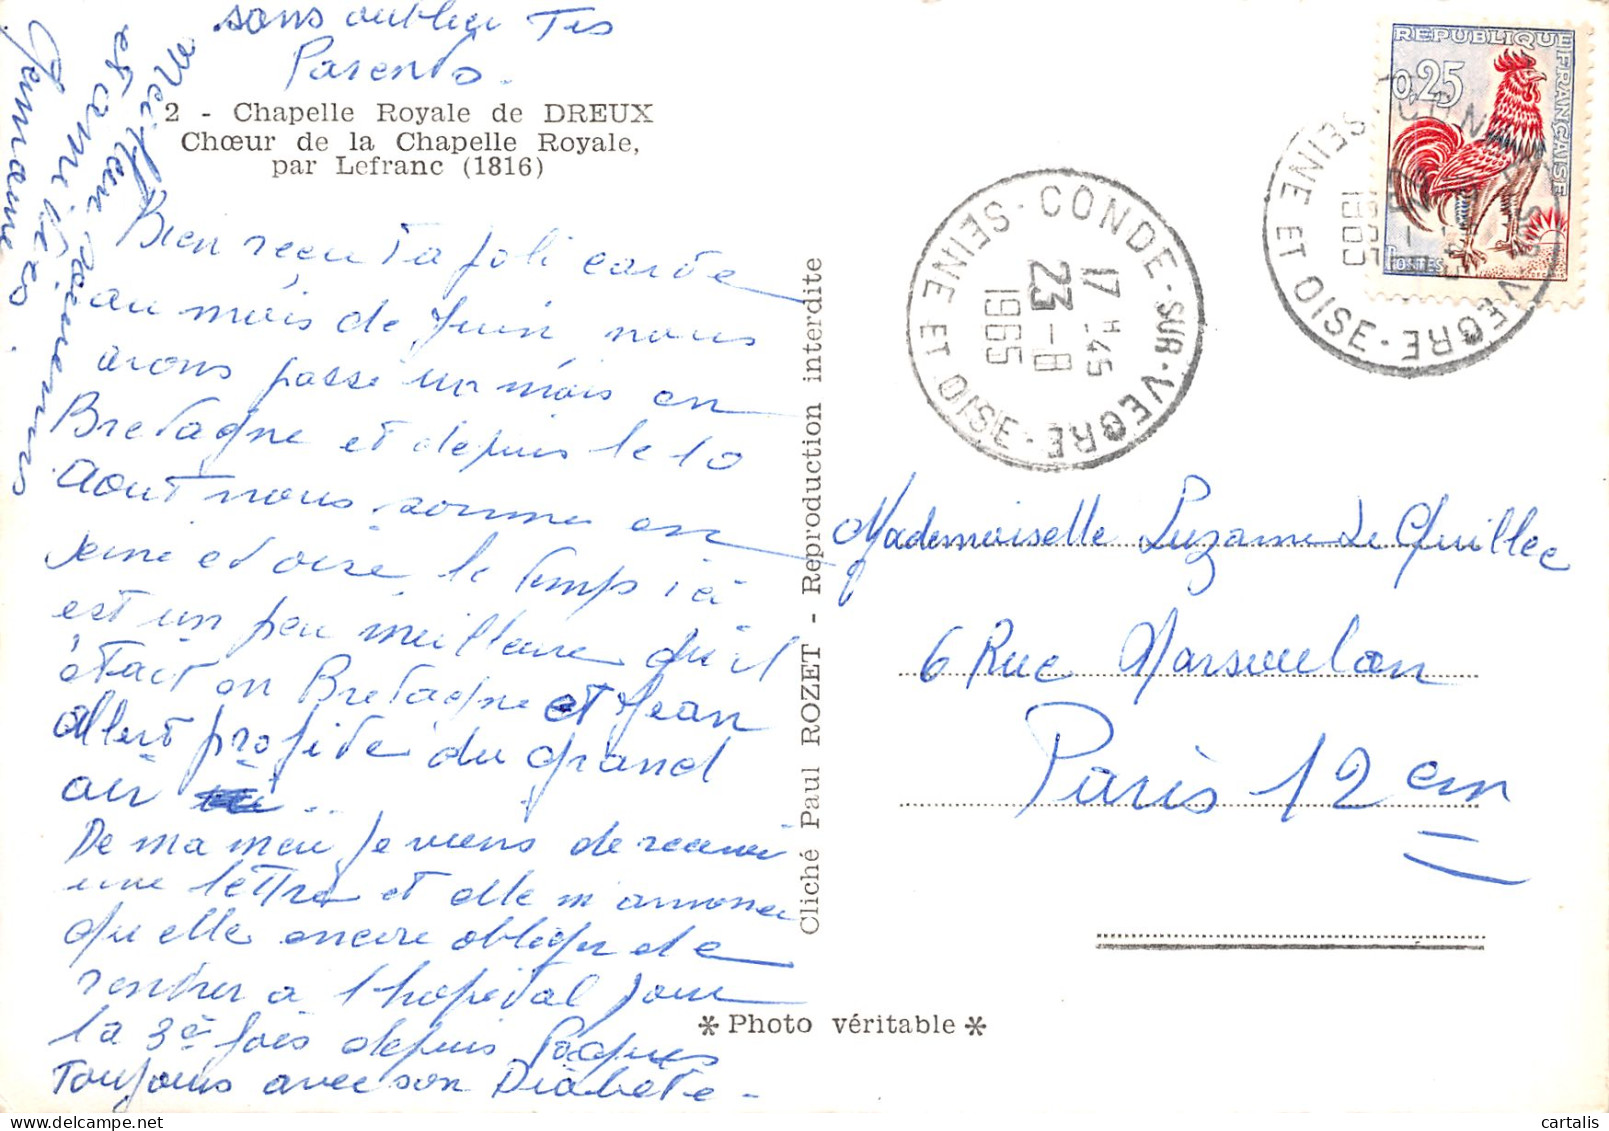 sans oublier Tes
Parents.
2 - Chapelle Royale de DREUX
Chœur de la Chapelle Royale,
par Lefranc (1816)
Bien reçu ta joli carte
au mois de Juin nous
avons passé un mois en
Bretagne et depuis le 10
Aout nous sommes en
seine et oise, le temps ici
est un peu meilleure qu'il
était en Bretagne et Jean
Albert profite du grand
air
De ma meri je viens de recevoir
une lettre et elle m'annonce
qu'elle encore obliger de
rentrer a l'hopital pour
la 3e fois depuis Paques
Toujours avec son Diabète -
Meilleurs souvenirs
et amitiés
Germaine
Cliché Paul ROZET - Reproduction interdite
* Photo véritable *
REPUBLIQUE FRANÇAISE
0,25
POSTES
CONDE-SUR-VEGRE
SEINE ET OISE
17H45
23-8
1965
CONDE-SUR-VEGRE
SEINE ET OISE
1965
Mademoiselle Suzanne Le Quillec
6 Rue Marsoulan
Paris 12 em
cartalis